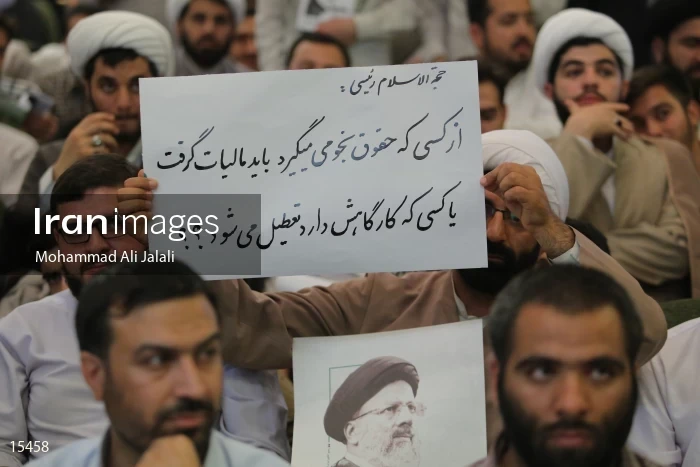 حجة الاسلام رئیسی :
از کسی که حقوق نجومی میگیرد باید مالیات گرفت
یا کسی که کارگاهش دارد تعطیل می شود ؟؟
Iranimages
Mohammad Ali Jalali
15458